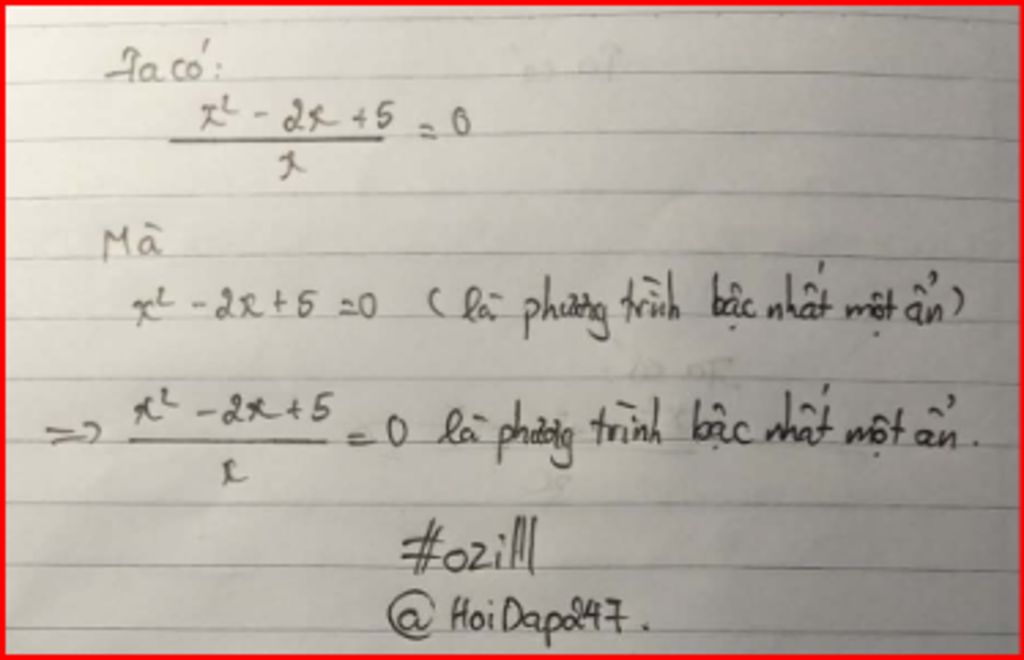 Ta có:
x² - 2x + 5 = 0
x
Mà
x² - 2x + 5 = 0 (là phương trình bậc nhất một ẩn)
=> x² - 2x + 5 = 0 là phương trình bậc nhất một ẩn.
x
#ozilll
@HoiDap247.